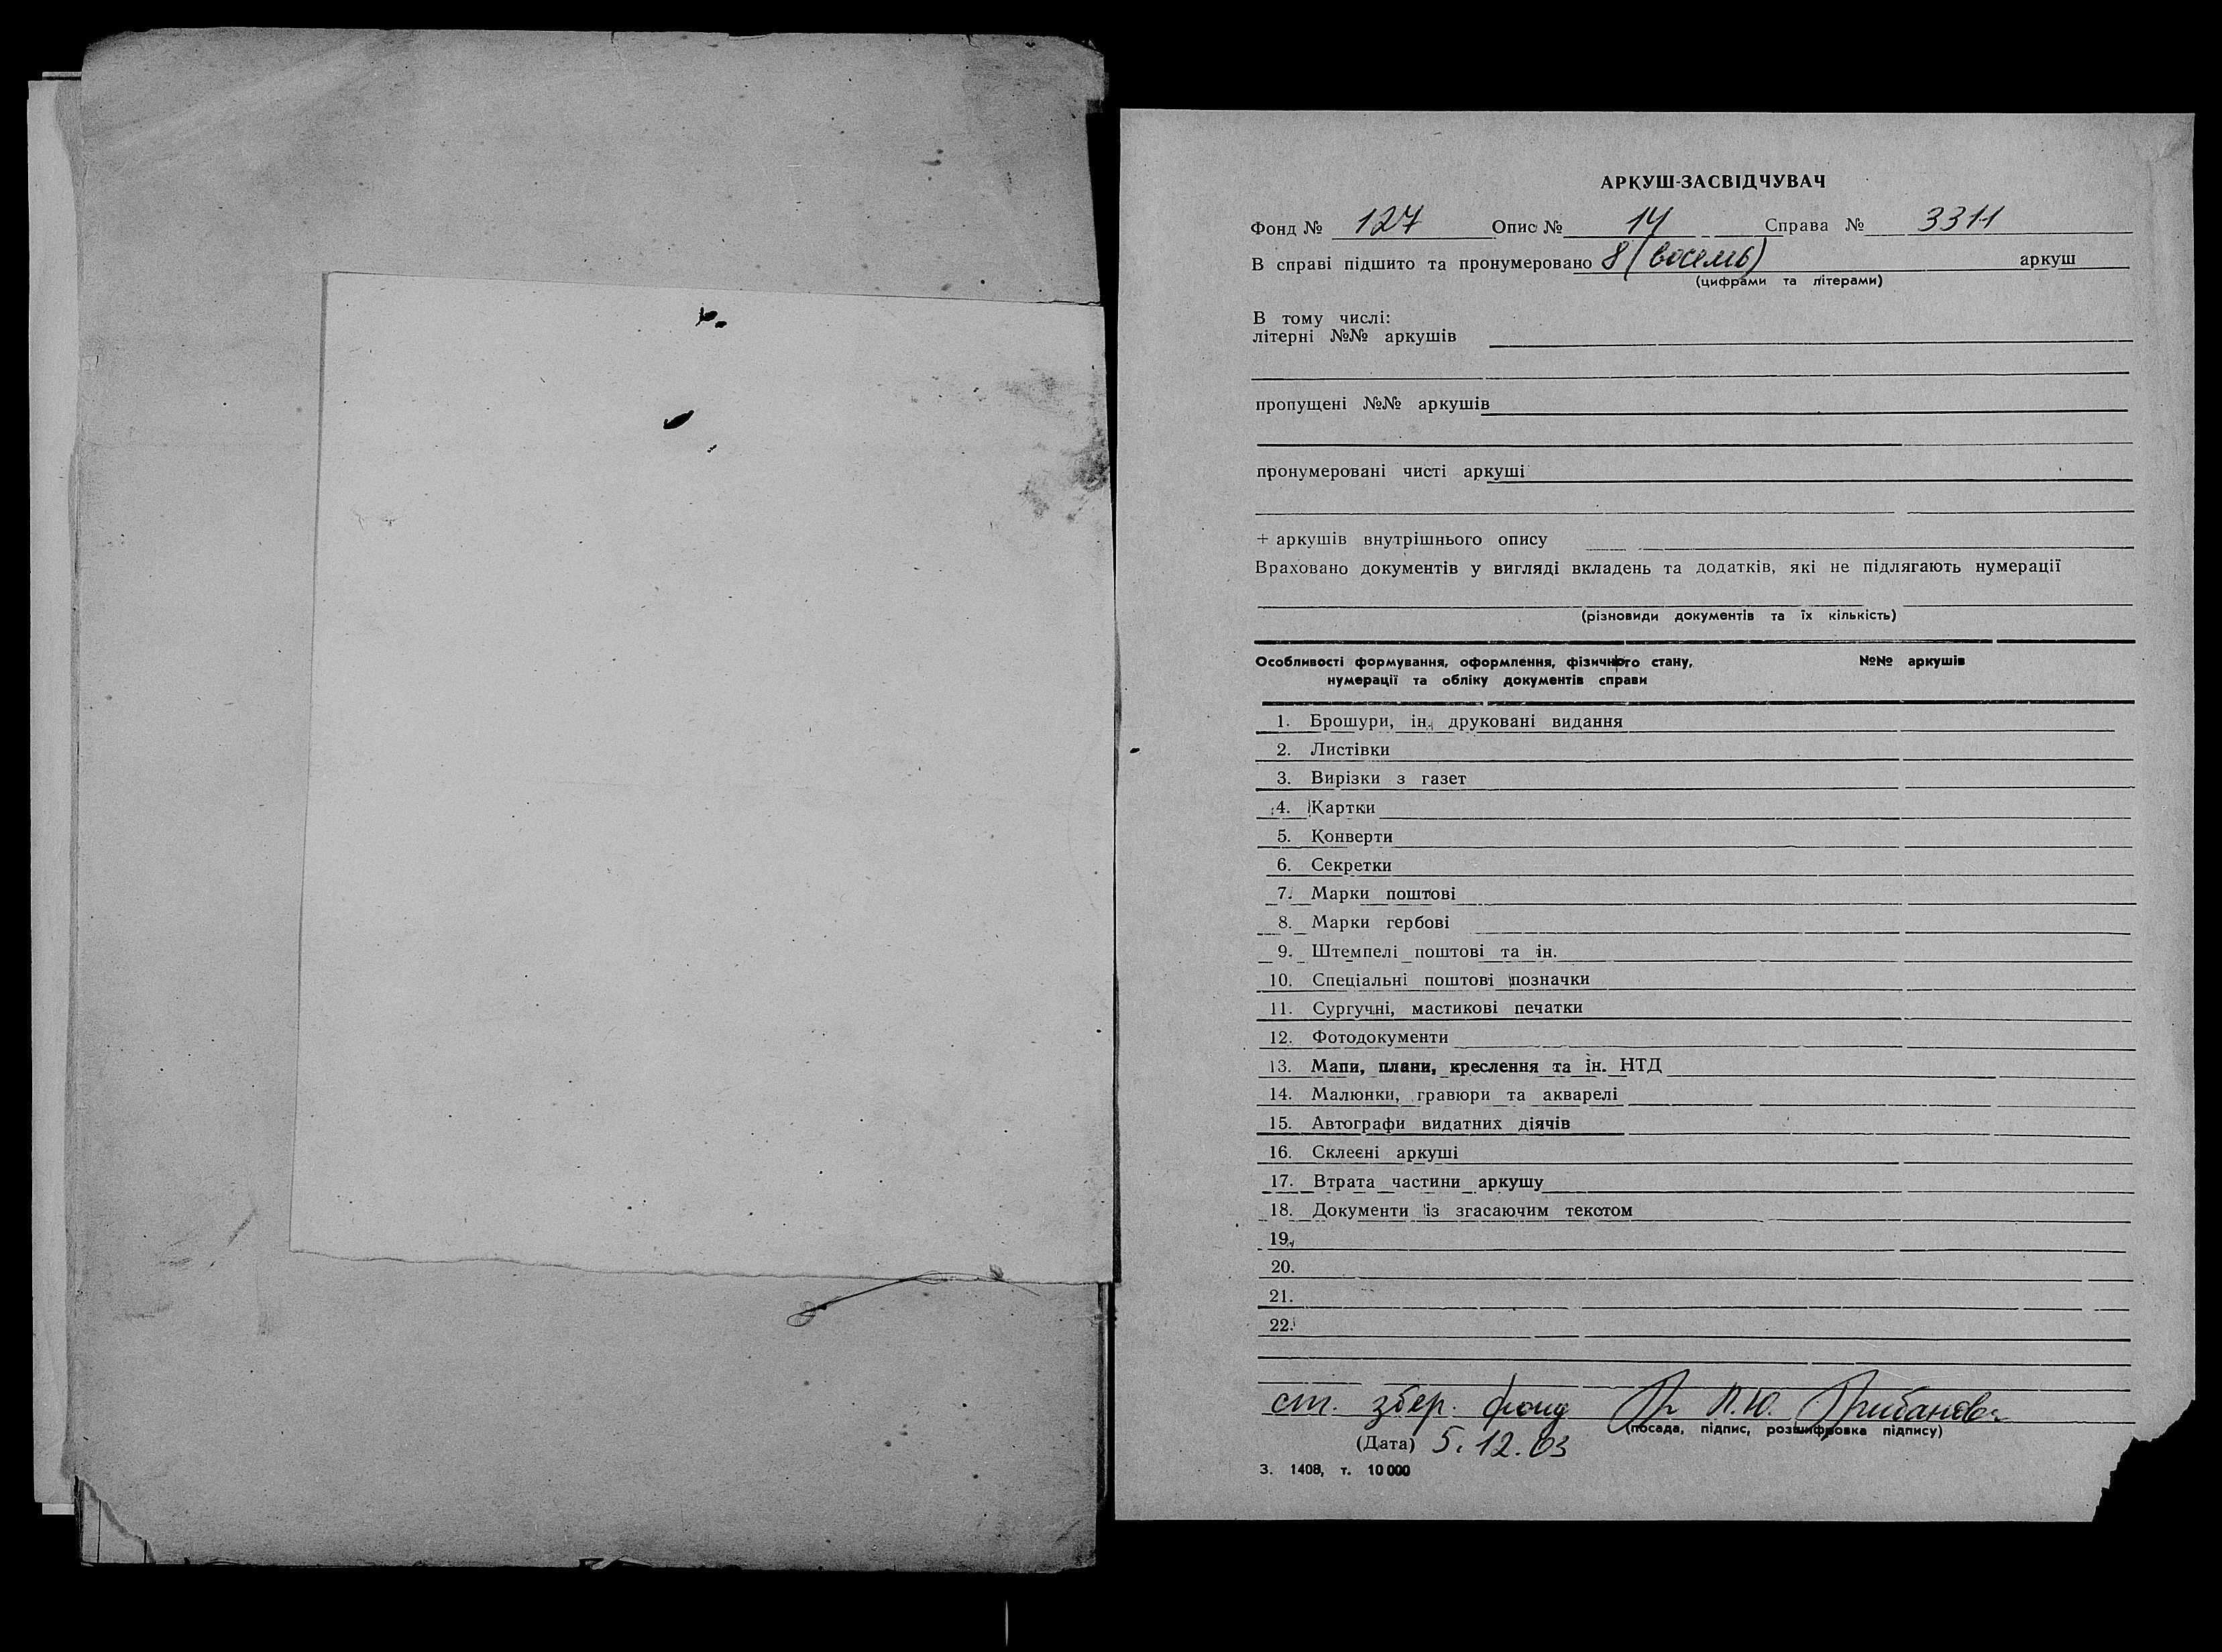 АРКУШ-ЗАСВІДЧУВАЧ
Фонд № 127 Опис № 14 Справа № 3311
В справі підшито та пронумеровано 8 (восемь) аркуш
(цифрами та літерами)
В тому числі:
літерні №№ аркушів
пропущені №№ аркушів
пронумеровані чисті аркуші
+ аркушів внутрішнього опису
Враховано документів у вигляді вкладень та додатків, які не підлягають нумерації
(різновиди документів та їх кількість)
Особливості формування, оформлення, фізичного стану, №№ аркушів
нумерації та обліку документів справи
1. Брошури, ін. друковані видання
2. Листівки
3. Вирізки з газет
4. Картки
5. Конверти
6. Секретки
7. Марки поштові
8. Марки гербові
9. Штемпелі поштові та ін.
10. Спеціальні поштові позначки
11. Сургучні, мастикові печатки
12. Фотодокументи
13. Мапи, плани, креслення та ін. НТД
14. Малюнки, гравюри та акварелі
15. Автографи видатних діячів
16. Склеєні аркуші
17. Втрата частини аркушу
18. Документи із згасаючим текстом
19.
20.
21.
22.
ст. збер. фонд Л.Ю. Грибанова
(посада, підпис, розшифровка підпису)
(Дата) 5.12.03
З. 1408, т. 10 000